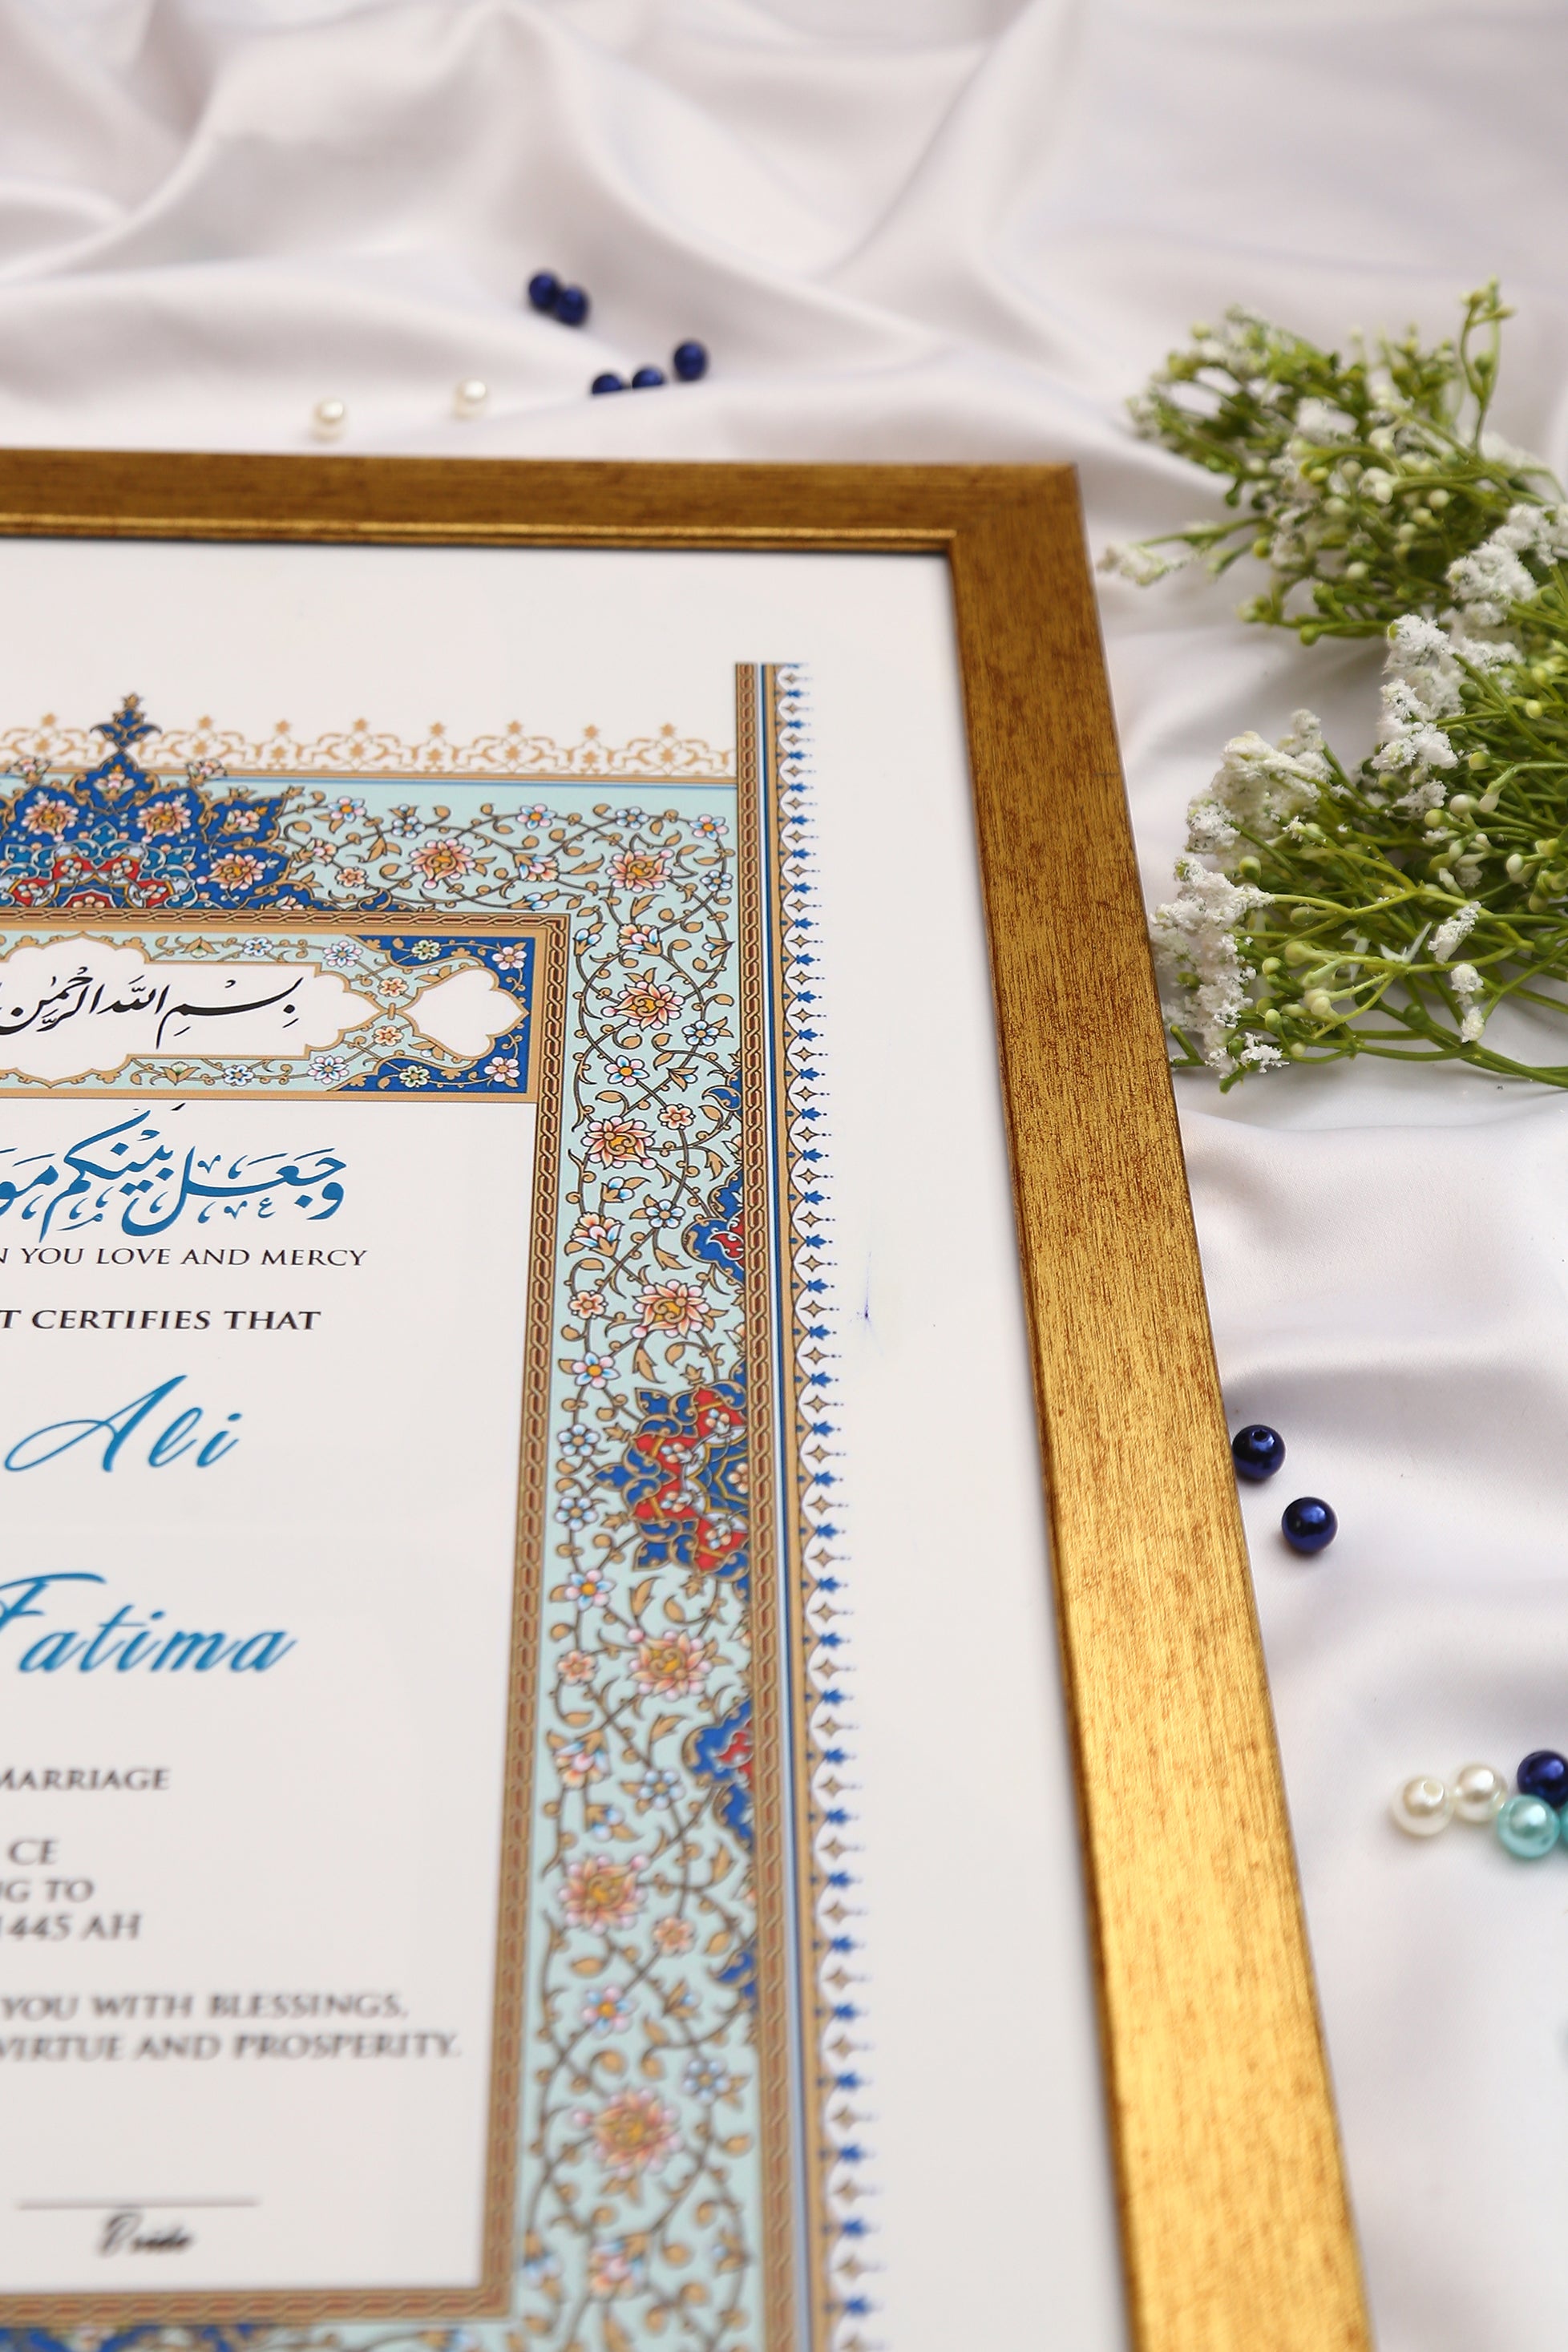 بِسْمِ اللَّهِ الرَّحْمَنِ
وَجَعَلَ بَيْنَكُم
YOU LOVE AND MERCY
CERTIFIES THAT
Ali
Fatima
MARRIAGE
CE
TO
1445 AH
YOU WITH BLESSINGS,
VIRTUE AND PROSPERITY.
Bride